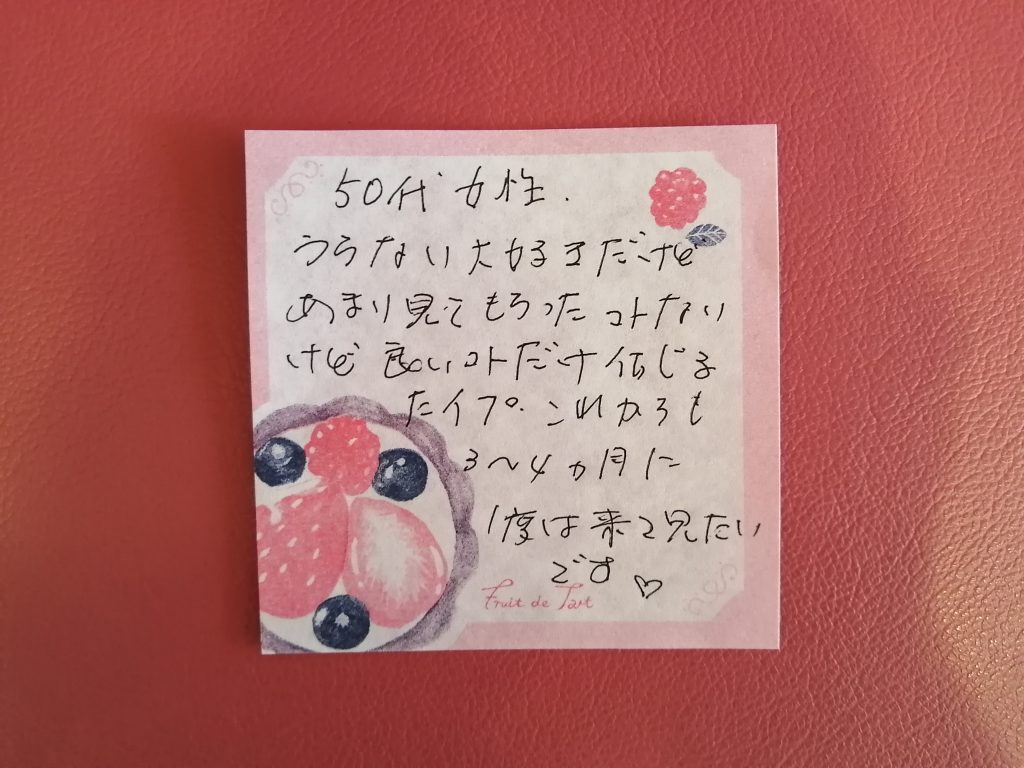 50代 女性.
うらない大好きだけど
あまり見てもらったコトない
けど 良いコトだけ信じる
たイプ。これからも
3〜4ヵ月に
1度は来て見たい
です♡
Fruit de Tart